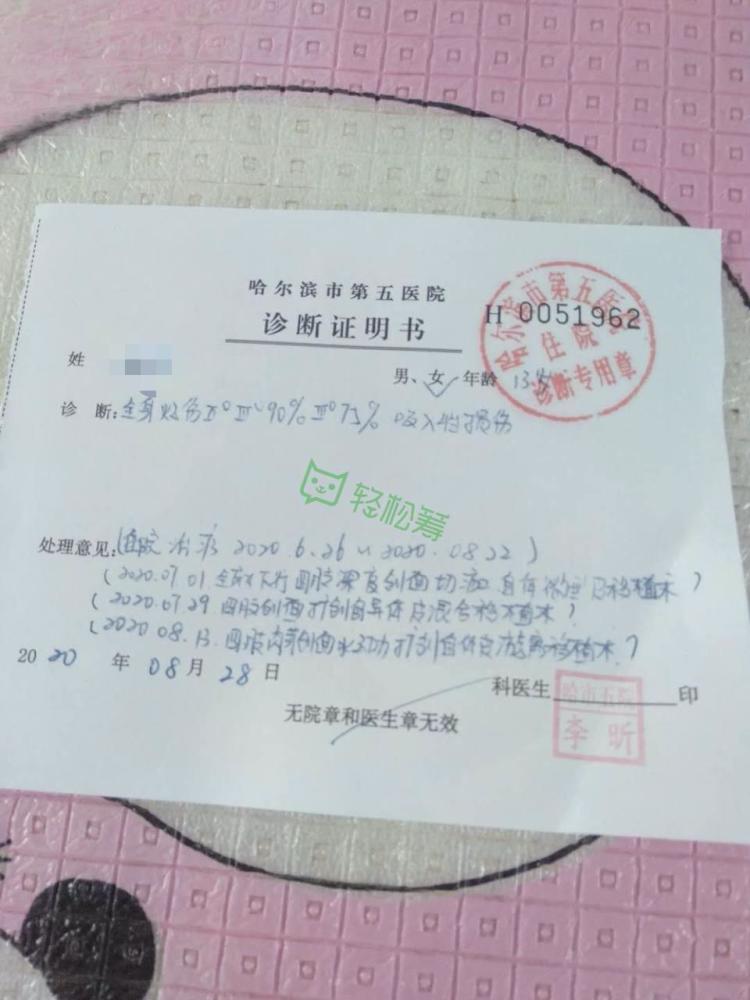 哈尔滨市第五医院
诊断证明书
H 0051962
哈尔滨市第五医院
住院
诊断专用章
姓
男、女 年龄 13岁
诊 断:全身烧伤 II° III° 90% III° 75% 吸入性损伤
轻松筹
处理意见:(住院治疗 2020.6.26 ~ 2020.08.22)
(2020.07.01 全麻下行四肢深度创面切痂 自体微型皮移植术)
(2020.07.29 四肢创面扩创自异体皮混合移植术)
(2020 08.13. 四肢肉芽创面水动力扩创自体皮游离移植术)
2020 年 08 月 28 日
科医生 印
哈市五院
李昕
无院章和医生章无效